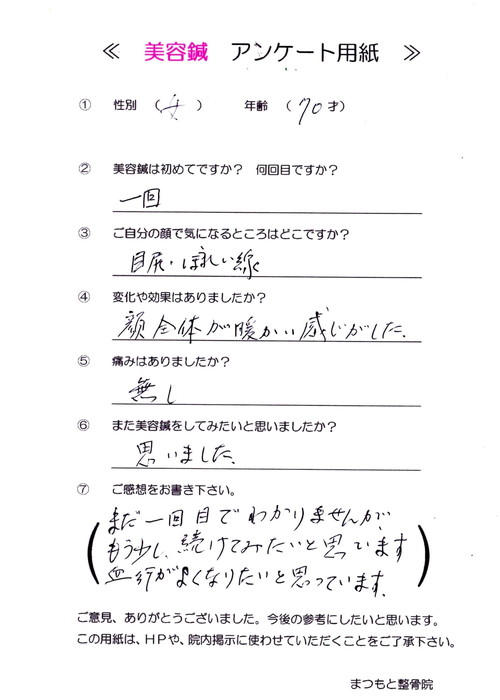 ≪ 美容鍼 アンケート用紙 ≫
① 性別 (女) 年齢 (70才)
② 美容鍼は初めてですか? 何回目ですか?
一回
③ ご自分の顔で気になるところはどこですか?
目尻・ほれい線
④ 変化や効果はありましたか?
顔全体が暖かい感じがした.
⑤ 痛みはありましたか?
無し
⑥ また美容鍼をしてみたいと思いましたか?
思いました.
⑦ ご感想をお書き下さい。
まだ一回目でわかりませんが
もう少し、続けてみたいと思っています
血行がよくなりたいと思っています.
ご意見、ありがとうございました。今後の参考にしたいと思います。
この用紙は、HPや、院内掲示に使わせていただくことをご了承下さい。
まつもと整骨院